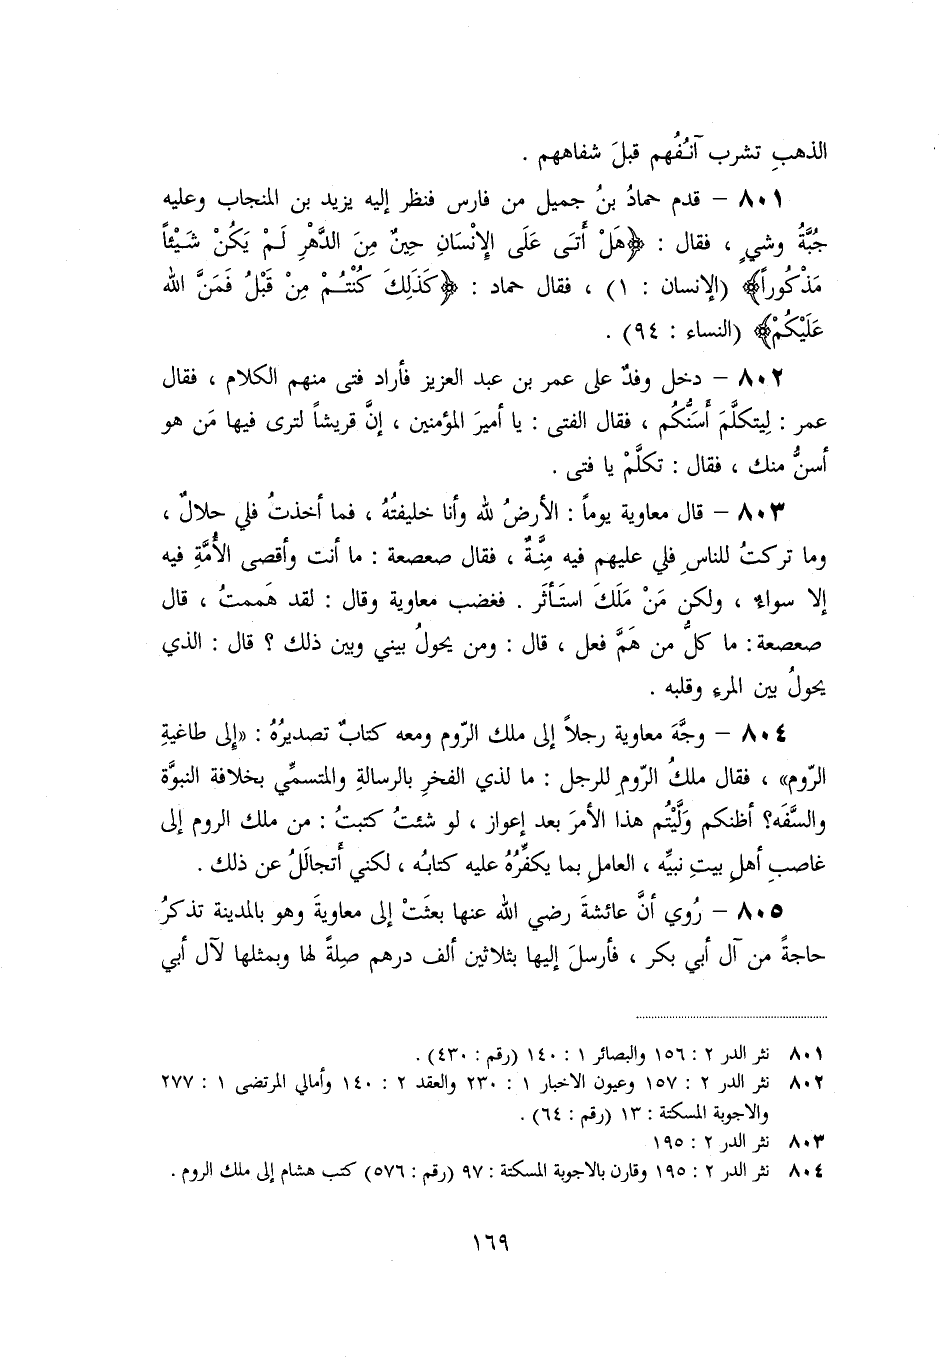 الذهبِ تشرب آنُفُهم قبلَ شفاههم .
٨٠١ – قدم حمادُ بنُ جميل من فارس فنظر إليه يزيد بن المنجاب وعليه
جُبَّةُ وشيٍ ، فقال : ﴿هَلْ أَتَى عَلَى الإِنْسَانِ حِينٌ مِنَ الدَّهْرِ لَمْ يَكُنْ شَيْئاً
مَذْكُوراً﴾ (الإنسان : ١) ، فقال حماد : ﴿كَذَلِكَ كُنْتُمْ مِنْ قَبْلُ فَمَنَّ الله
عَلَيْكُمْ﴾ (النساء : ٩٤) .
٨٠٢ – دخل وفدٌ على عمر بن عبد العزيز فأراد فتى منهم الكلام ، فقال
عمر : لِيتكلَّمَ أَسَنُّكُم ، فقال الفتى : يا أميرَ المؤمنين ، إنَّ قريشاً لترى فيها مَن هو
أسنُّ منك ، فقال : تكلَّمْ يا فتى .
٨٠٣ – قال معاوية يوماً : الأرضُ لله وأنا خليفتُهُ ، فما أخذتُ فلي حلالٌ ،
وما تركتُ للناسِ فلي عليهم فيه مِنَّةٌ ، فقال صعصعة : ما أنت وأقصى الأُمَّةِ فيه
إلا سواءٌ ، ولكن مَنْ مَلَكَ استَأثَر . فغضب معاوية وقال : لقد هَممتُ ، قال
صعصعة : ما كلُّ من هَمَّ فعل ، قال : ومن يحولُ بيني وبين ذلك ؟ قال : الذي
يحولُ بين المرءِ وقلبه .
٨٠٤ – وجَّهَ معاوية رجلاً إلى ملك الرّوم ومعه كتابٌ تصديرُهُ : «إلى طاغيةِ
الرّوم» ، فقال ملكُ الرّومِ للرجل : ما لذي الفخرِ بالرسالةِ والمتسمِّي بخلافة النبوَّة
والسَّفَه؟ أظنكم وَلَّيْتُم هذا الأمرَ بعد إعواز ، لو شئتُ كتبتُ : من ملك الروم إلى
غاصبِ أهلِ بيتِ نبيِّه ، العاملِ بما يكفِّرُهُ عليه كتابُه ، لكني أَتجالَلُ عن ذلك .
٨٠٥ – رُوي أنَّ عائشةَ رضي الله عنها بعثَتْ إلى معاويةَ وهو بالمدينة تذكرُ
حاجةً من آل أبي بكر ، فأرسلَ إليها بثلاثين ألف درهم صِلةً لها وبمثلها لآل أبي
٨٠١ نثر الدر ٢ : ١٥٦ والبصائر ١ : ١٤٠ (رقم : ٤٣٠) .
٨٠٢ نثر الدر ٢ : ١٥٧ وعيون الاخبار ١ : ٢٣٠ والعقد ٢ : ١٤٠ وأمالي المرتضى ١ : ٢٧٧
والاجوبة المسكتة : ١٣ (رقم : ٦٤) .
٨٠٣ نثر الدر ٢ : ١٩٥
٨٠٤ نثر الدر ٢ : ١٩٥ وقارن بالاجوبة المسكتة : ٩٧ (رقم : ٥٧٦) كتب هشام إلى ملك الروم .
١٦٩